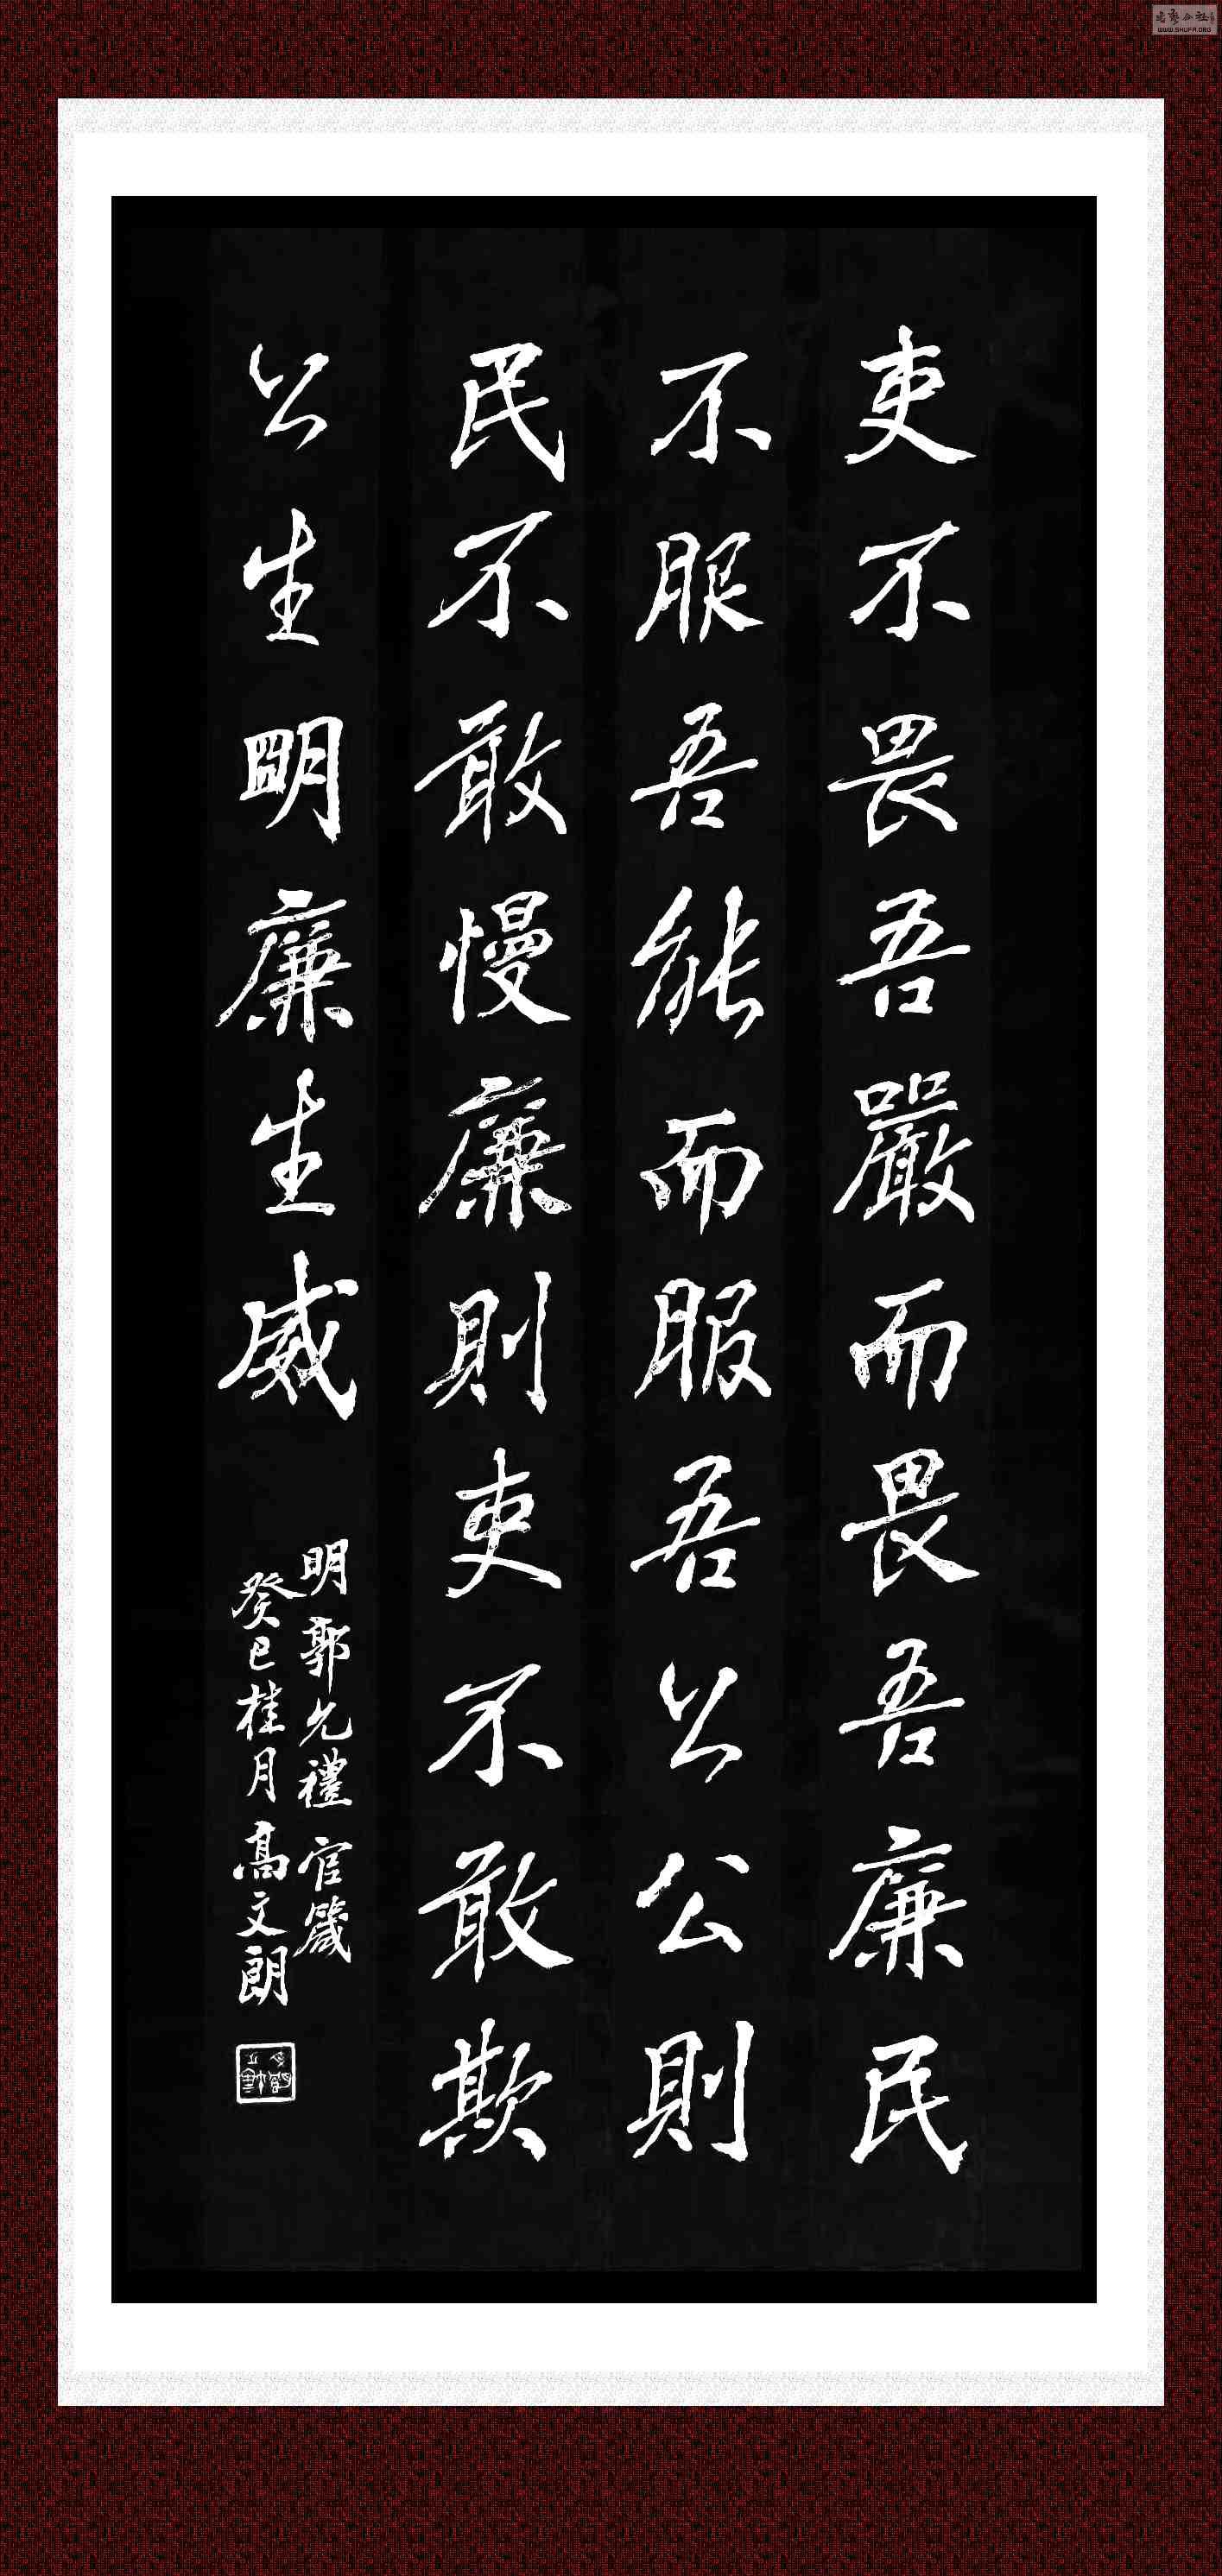 吏不畏吾嚴而畏吾廉民
不服吾能而服吾公公則
民不敢慢廉則吏不敢欺
公生明廉生威
明郭允禮官箴
癸巳桂月高文朗
WWW.SHUFA.ORG